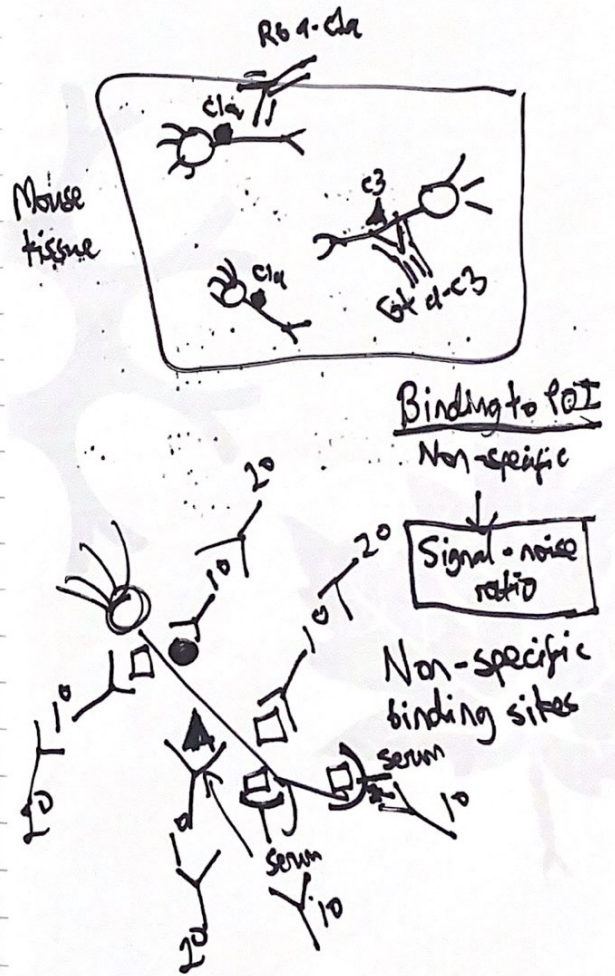 Rb α-C1q
C1q
Mouse
tissue
C3
C1q
Gt α-C3
Binding to POI
Non-speific
Signal-noise
ratio
2°
1°
2°
1°
Non-specific
binding sites
1°
2°
serum
1°
1°
serum
1°
2°